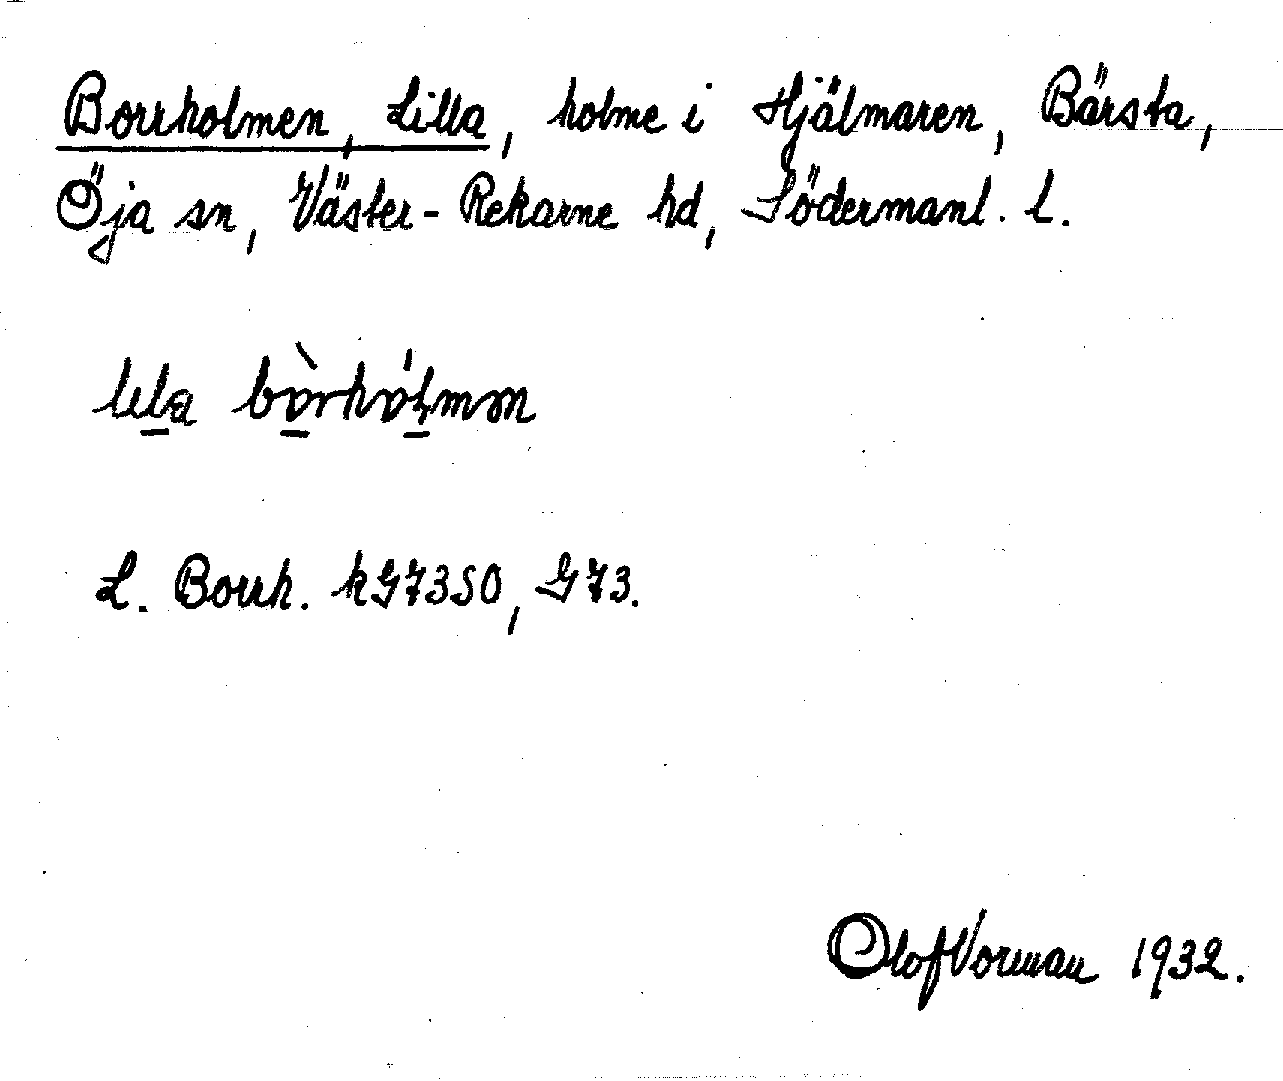 Borrholmen, Lilla, holme i Hjälmaren, Bärsta,
Öja sn, Väster-Rekarne hd, Södermanl. l.
lila bòrhólmən
L. Borrh. k G7350, G73.
Olof Vorman 1932.